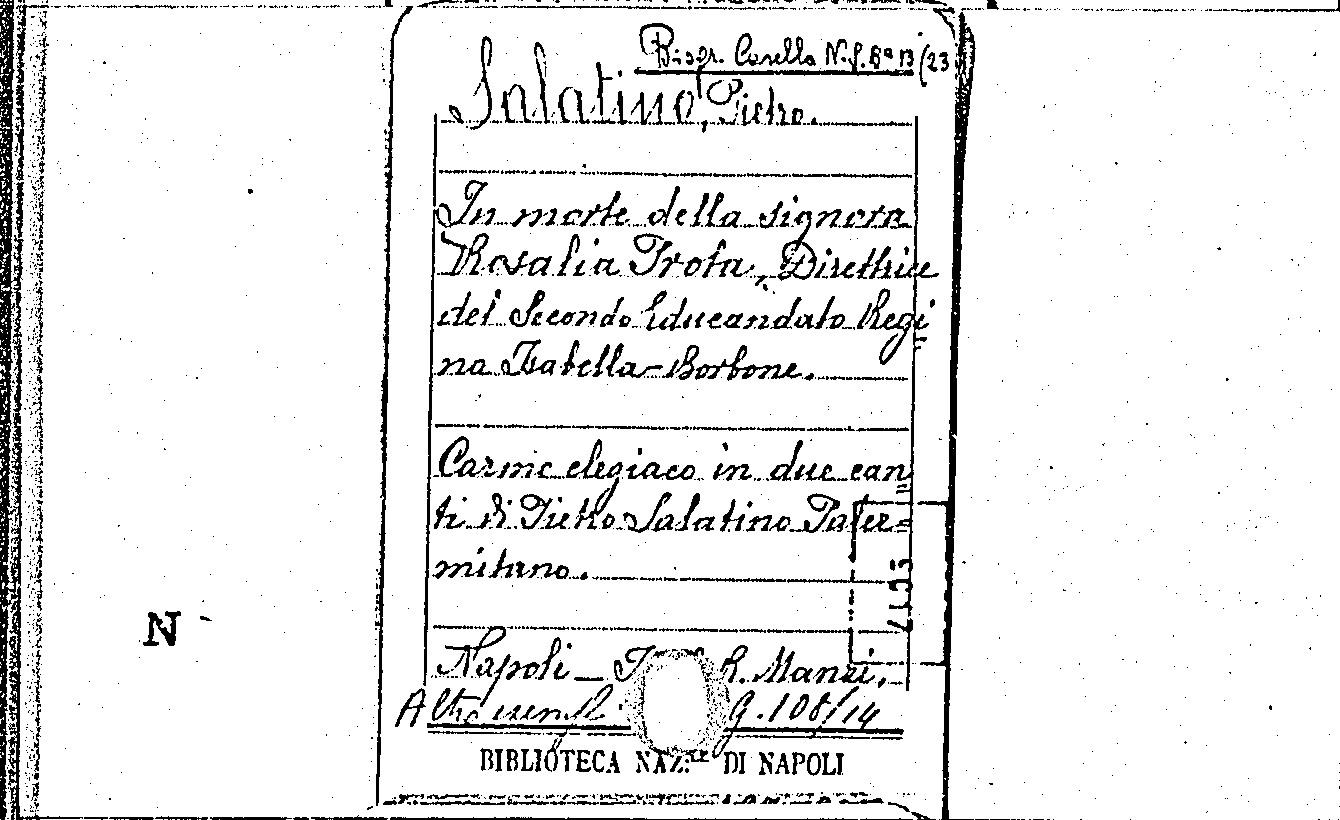 Biogr. Casella N. f. Bª 13 (23
Salatino, Pietro.
In morte della signora
Rosalia Trota, Direttrice
del Secondo Educandato Regi=
na Isabella-Borbone.
Carme elegiaco in due can=
ti di Pietro Salatino Paler=
mitano.
Napoli — R. Manzi.
Altro esempl. g. 108/14
BIBLIOTECA NAZ.LE DI NAPOLI
N